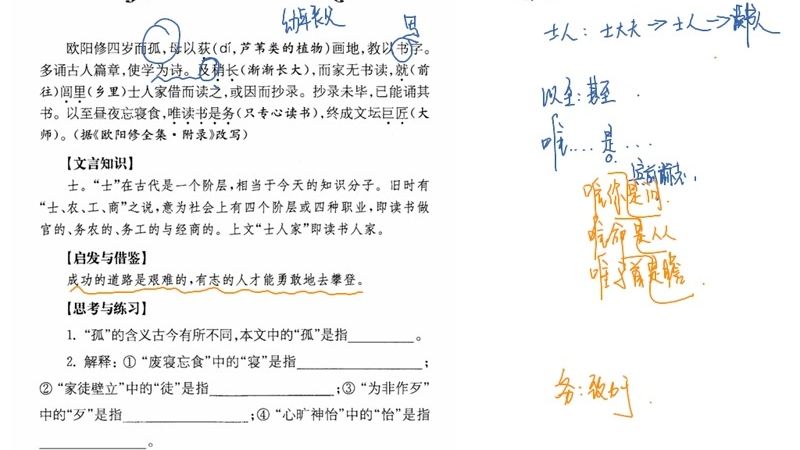 幼年丧父
欧阳修四岁而孤，母以荻（dí，芦苇类的植物）画地，教以书字。
多诵古人篇章，使学为诗。及稍长（渐渐长大），而家无书读，就（前
往）闾里（乡里）士人家借而读之，或因而抄录。抄录未毕，已能诵其
书。以至昼夜忘寝食，唯读书是务（只专心读书），终成文坛巨匠（大
师）。（据《欧阳修全集·附录》改写）
【文言知识】
士。“士”在古代是一个阶层，相当于今天的知识分子。旧时有
“士、农、工、商”之说，意为社会上有四个阶层或四种职业，即读书做
官的、务农的、务工的与经商的。上文“士人家”即读书人家。
【启发与借鉴】
成功的道路是艰难的，有志的人才能勇敢地去攀登。
【思考与练习】
1. “孤”的含义古今有所不同，本文中的“孤”是指________。
2. 解释：①“废寝忘食”中的“寝”是指____________；
②“家徒壁立”中的“徒”是指____________；③“为非作歹”
中的“歹”是指____________；④“心旷神怡”中的“怡”是指
____________。
士人：士大夫→士人→读书人
以至：甚至
唯....是...
宾语前志
唯你是问
唯命是从
唯马首是瞻
务：致力于